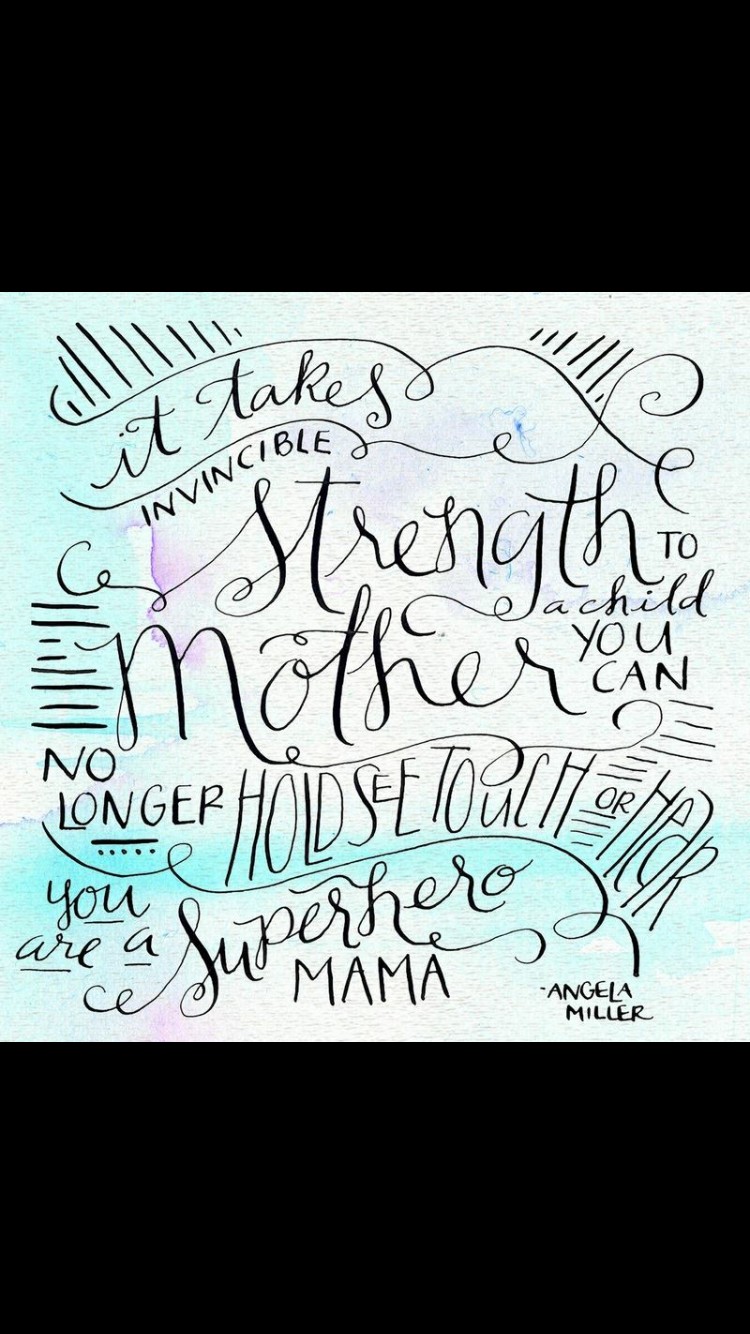 it takes
INVINCIBLE
Strength TO
Mother a child
YOU
CAN
NO
LONGER HOLD SEE TOUCH OR HEAR
you
are a Superhero
MAMA
-ANGELA
MILLER